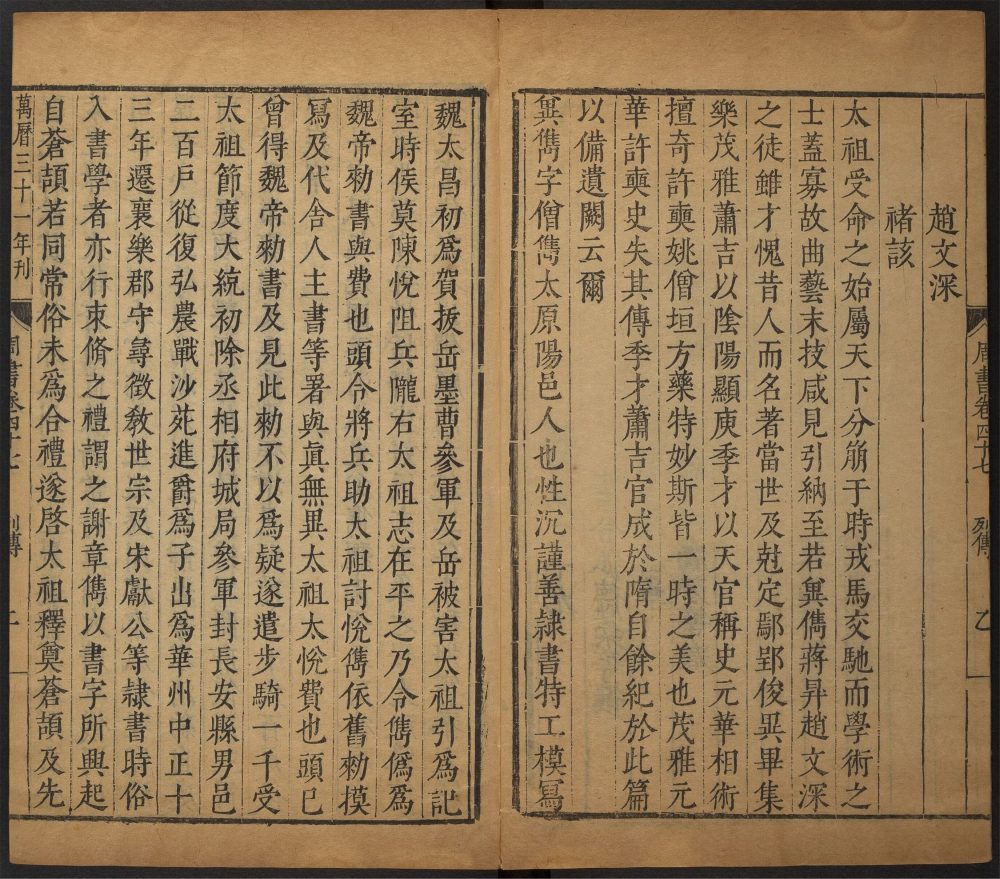 周書卷四十七 列傳
趙文深
禇該
太祖受命之始屬天下分崩于時戎馬交馳而學術之
士蓋寡故曲藝末技咸見引納至若兾儁蔣昇趙文深
之徒雖才愧昔人而名著當世及尅定鄢郢俊異畢集
樂茂雅蕭吉以陰陽顯庾季才以天官稱史元華相術
擅奇許奭姚僧垣方藥特妙斯皆一時之美也茂雅元
華許奭史失其傳季才蕭吉官成於隋自餘紀於此篇
以備遺闕云爾
兾儁字僧儁太原陽邑人也性沉謹善隸書特工模寫
魏太昌初爲賀拔岳墨曹參軍及岳被害太祖引爲記
室時侯莫陳悅阻兵隴右太祖志在平之乃令儁僞爲
魏帝勑書與費也頭令將兵助太祖討悅儁依舊勑模
寫及代舍人主書等署與眞無異太祖大悅費也頭巳
曾得魏帝勑書及見此勑不以爲疑遂遣步騎一千受
太祖節度大統初除丞相府城局參軍封長安縣男邑
二百戶從復弘農戰沙苑進爵爲子出爲華州中正十
三年遷襄樂郡守尋徵敎世宗及宋獻公等隸書時俗
入書學者亦行束脩之禮謂之謝章儁以書字所興起
自蒼頡若同常俗未爲合禮遂啓太祖釋奠蒼頡及先
萬曆三十一年刊 周書卷四十七 列傳 二